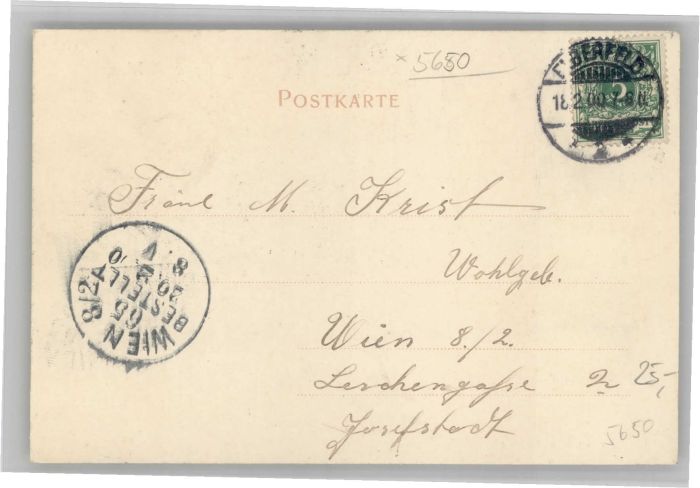 5650
POSTKARTE
ELBERFELD
18.2.00. 7-8 N.
5
Fräul M. Krist
Wohlgeb.
Wien 8./2.
Lerchengasse 2
25,-
Josefstadt
5650
WIEN 8/2
65
BESTELLT
20. 2. 00
8. V